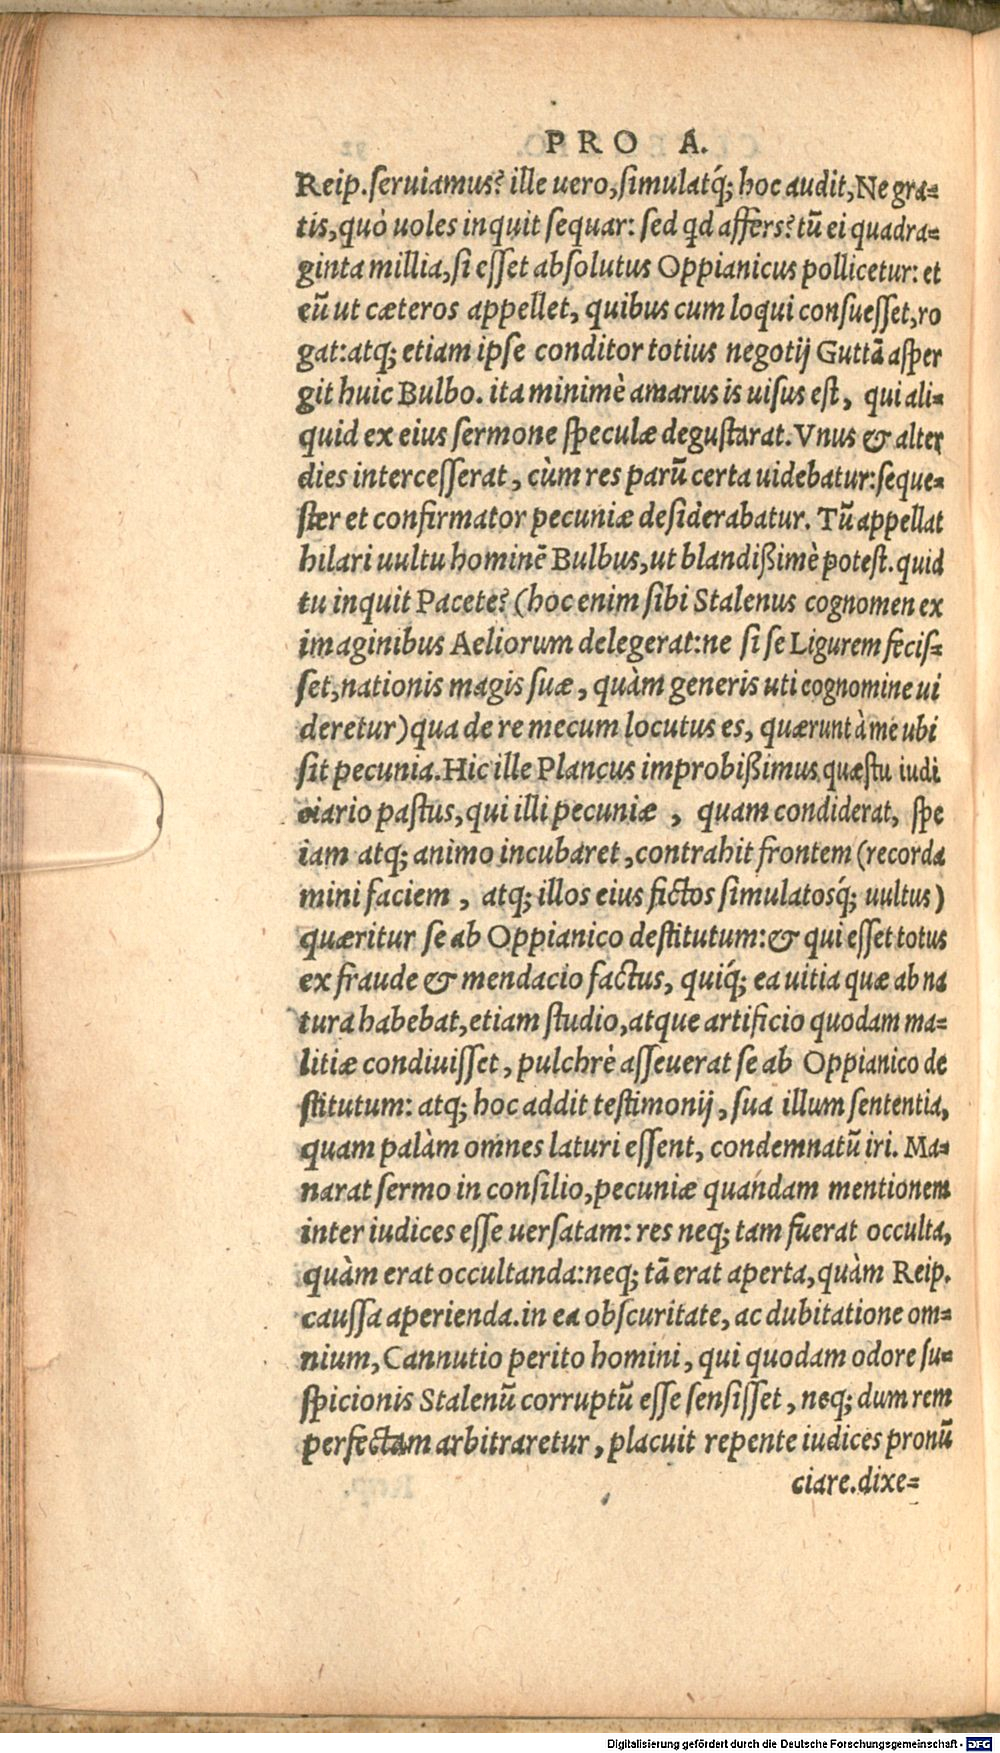 PRO A.
Reip. seruiamus? ille uero, simulatq́; hoc audit, Ne gra=
tis, quò uoles inquit sequar: sed qd affers? tū ei quadra=
ginta millia, si esset absolutus Oppianicus pollicetur: et
eū ut cæteros appellet, quibus cum loqui consuesset, ro
gat: atq; etiam ipse conditor totius negotij Guttā asper
git huic Bulbo. ita minimè amarus is uisus est, qui ali=
quid ex eius sermone speculæ degustarat. Vnus & alter
dies intercesserat, cùm res parū certa uidebatur: seque=
ster et confirmator pecuniæ desiderabatur. Tū appellat
hilari uultu hominē Bulbus, ut blandißimè potest. quid
tu inquit Pacete? (hoc enim sibi Stalenus cognomen ex
imaginibus Aeliorum delegerat: ne si se Ligurem fecis=
set, nationis magis suæ, quàm generis uti cognomine ui
deretur) qua de re mecum locutus es, quærunt à me ubi
sit pecunia. Hic ille Plancus improbißimus quæstu iudi
ciario pastus, qui illi pecuniæ, quam condiderat, spe
iam atq; animo incubaret, contrahit frontem (recorda
mini faciem, atq; illos eius fictos simulatosq́; uultus)
quæritur se ab Oppianico destitutum: & qui esset totus
ex fraude & mendacio factus, quiq́; ea uitia quæ ab na
tura habebat, etiam studio, atque artificio quodam ma=
litiæ condiuisset, pulchrè asseuerat se ab Oppianico de
stitutum: atq; hoc addit testimonij, sua illum sententia,
quam palàm omnes laturi essent, condemnatū iri. Ma=
narat sermo in consilio, pecuniæ quandam mentionem
inter iudices esse uersatam: res neq; tam fuerat occulta,
quàm erat occultanda: neq; tā erat aperta, quàm Reip.
caussa aperienda. in ea obscuritate, ac dubitatione om=
nium, Cannutio perito homini, qui quodam odore su=
spicionis Stalenū corruptū esse sensisset, neq; dum rem
perfectam arbitraretur, placuit repente iudices pronū
ciare. dixe=
Digitalisierung gefördert durch die Deutsche Forschungsgemeinschaft - DFG